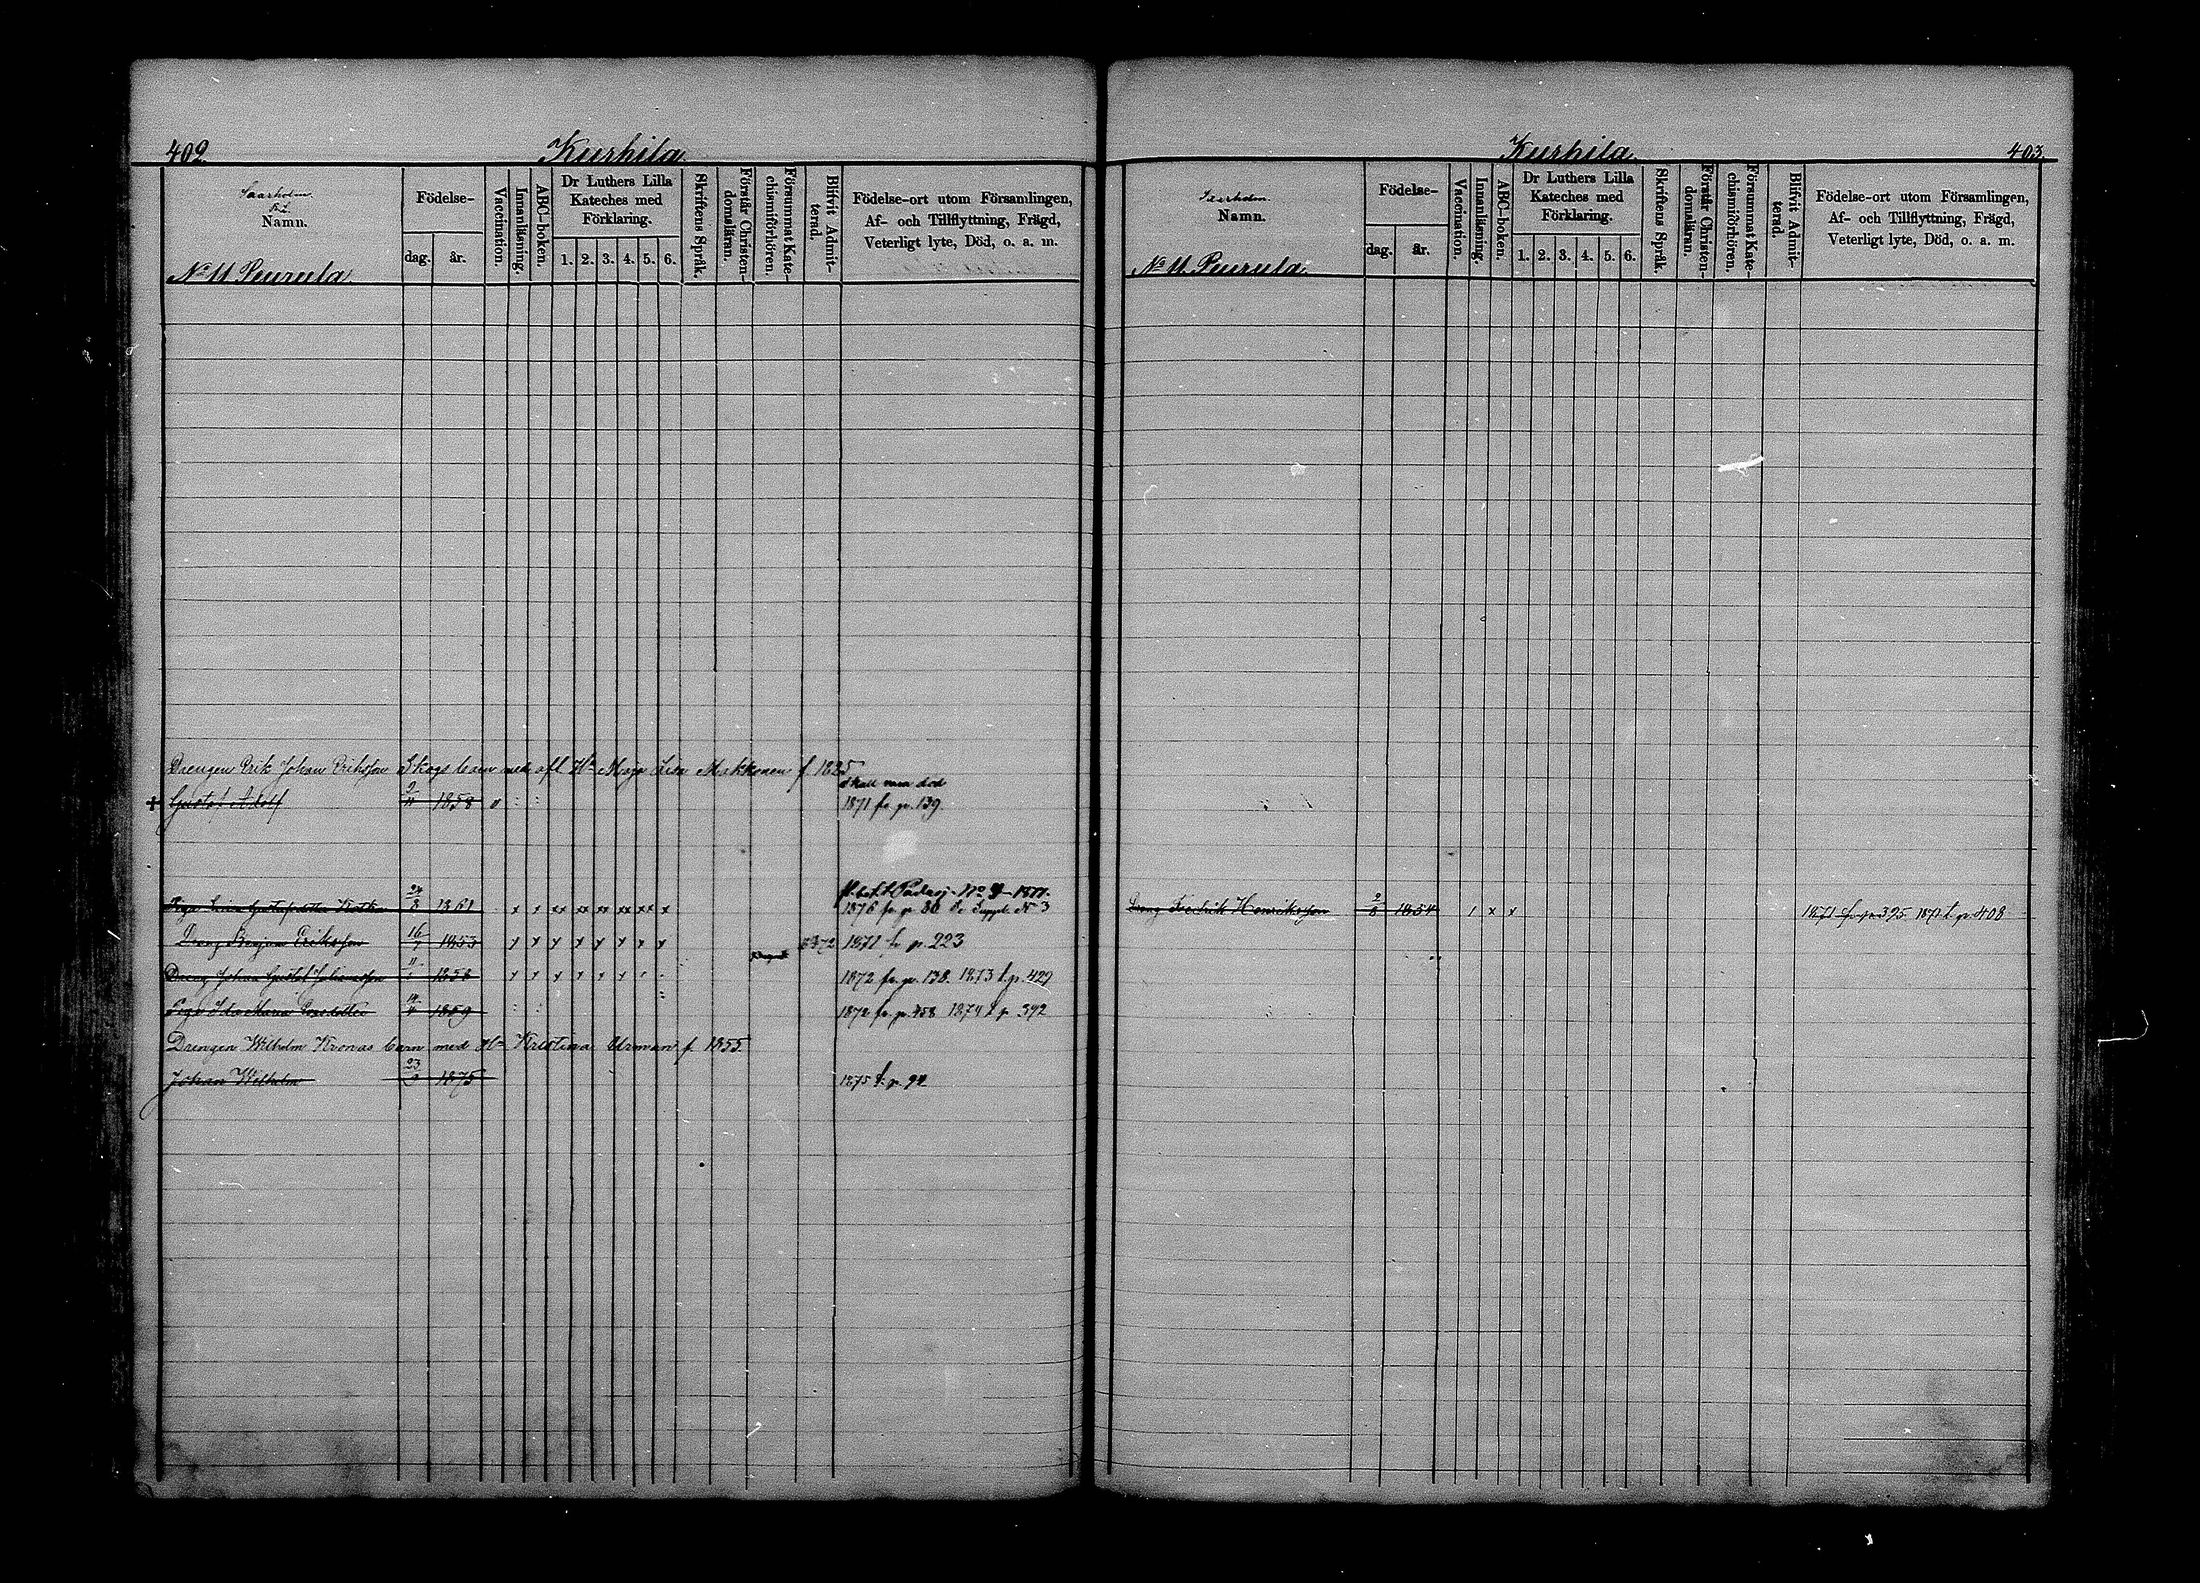 402
Kurhila
Saarholm.
Namn.
Födelse-
dag.
år.
Vaccination.
Innanläsning.
ABC-boken.
Dr Luthers Lilla
Kateches med
Förklaring.
1. 2. 3. 4. 5. 6.
Skriftens Språk.
Förstår Christen-
domsläran.
Försummat Kate-
chismiförhören.
Blifvit Admit-
terad.
Födelse-ort utom Församlingen,
Af- och Tillflyttning, Frägd,
Veterligt lyte, Död, o. a. m.
No 11 Peurula
Drengen Erik Johan Eriksson Skogs barn med afl. Maja Lisa Makkonen f. 1825
skall vara död
Gustaf Adolf 2/11 1858 1871 fr. p. 139.
No 9 1877.
Piga Gustafsdotter 24/8 1861 x x xx xx xx xx x 1876 fr. p. 86 Suppl. No 3
Dreng Benjam Eriksson 16 1853 x x x x x x x x 1872 1871 fr p. 223
Dreng Johan Gustaf Johansson 11 1858 x x x x x x 1872 fr. p. 138. 1873 t. p. 429
Piga Ida Maria 1859 1872 fr. p. 458 1874 t. p. 342
Drengen Wilhelm Kronas barn med Kristina Urman f. 1855.
Johan Wilhelm 23 1875 1875 t. p. 94
Kurhila
403
Saarholm.
Namn.
Födelse-
dag.
år.
Vaccination.
Innanläsning.
ABC-boken.
Dr Luthers Lilla
Kateches med
Förklaring.
1. 2. 3. 4. 5. 6.
Skriftens Språk.
Förstår Christen-
domsläran.
Försummat Kate-
chismiförhören.
Blifvit Admit-
terad.
Födelse-ort utom Församlingen,
Af- och Tillflyttning, Frägd,
Veterligt lyte, Död, o. a. m.
No 11 Peurula
Dreng Fredrik Henriksson 2/8 1854 x x 1871 fr. p. 395 1871 t. p. 408